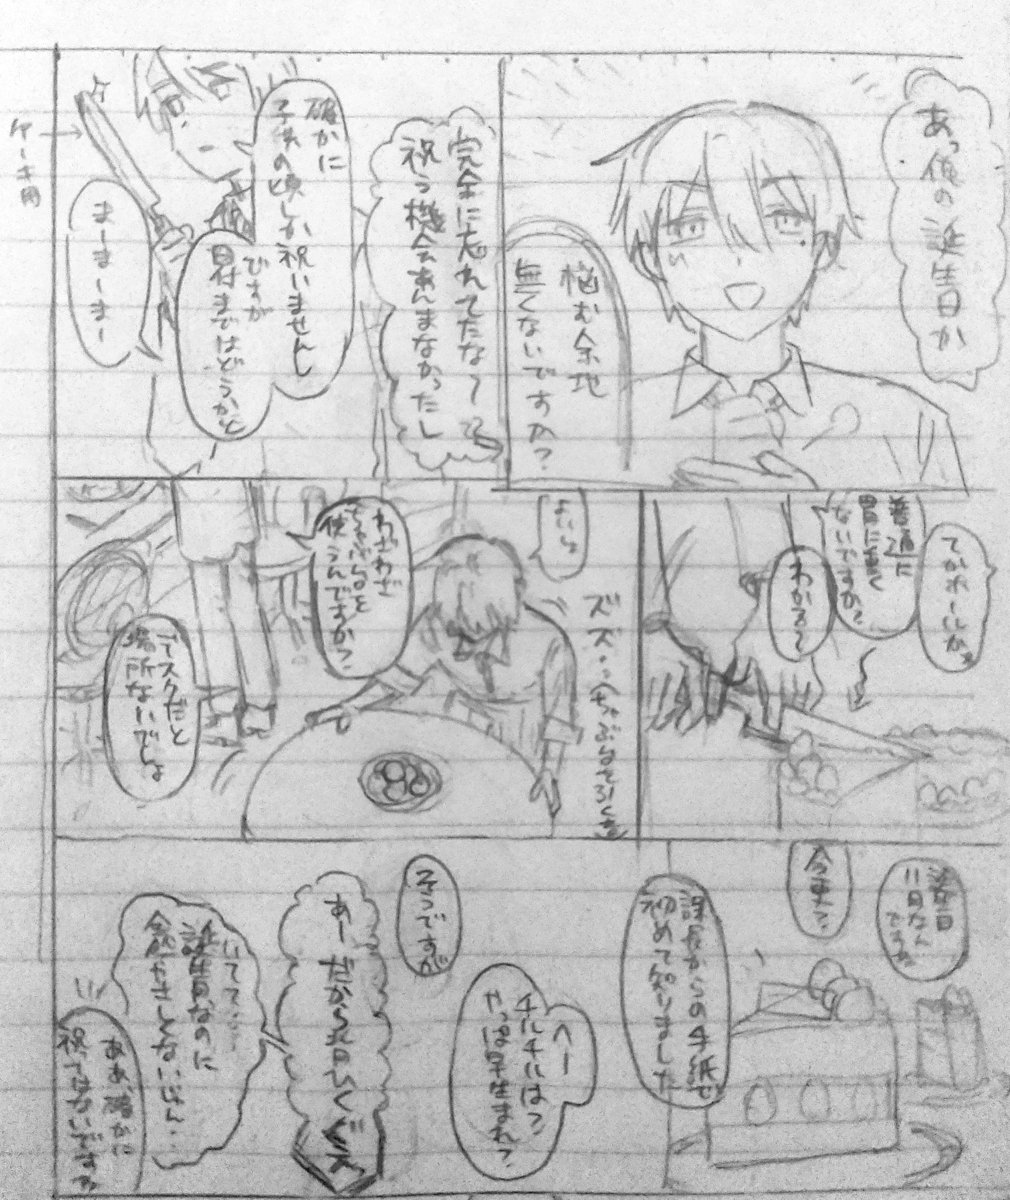 あっ俺の誕生日か
悩む余地
無くないですか?
完全に忘れてたな〜
祝う機会あんまなかったし
確かに
子供の頃しか祝いません
ですが
まではどうかと
まーまーまー
ケーキ用
てかホールか
普通に
胃に重く
ないですか?
わかる〜
よいしょ
ズズ…
わざわざ
ちゃぶ台を
使うんですか?
デスクだと
場所ないでしょ
誕生日
11日なん
ですか
今更?
課長からの手紙で
初めて知りました
へー
チルチルは?
やっぱ早生まれ?
そうですが
あー だから
いてて…
誕生日なのに
全然やさしくないじゃん…
ああ、確かに
祝ってはないですね